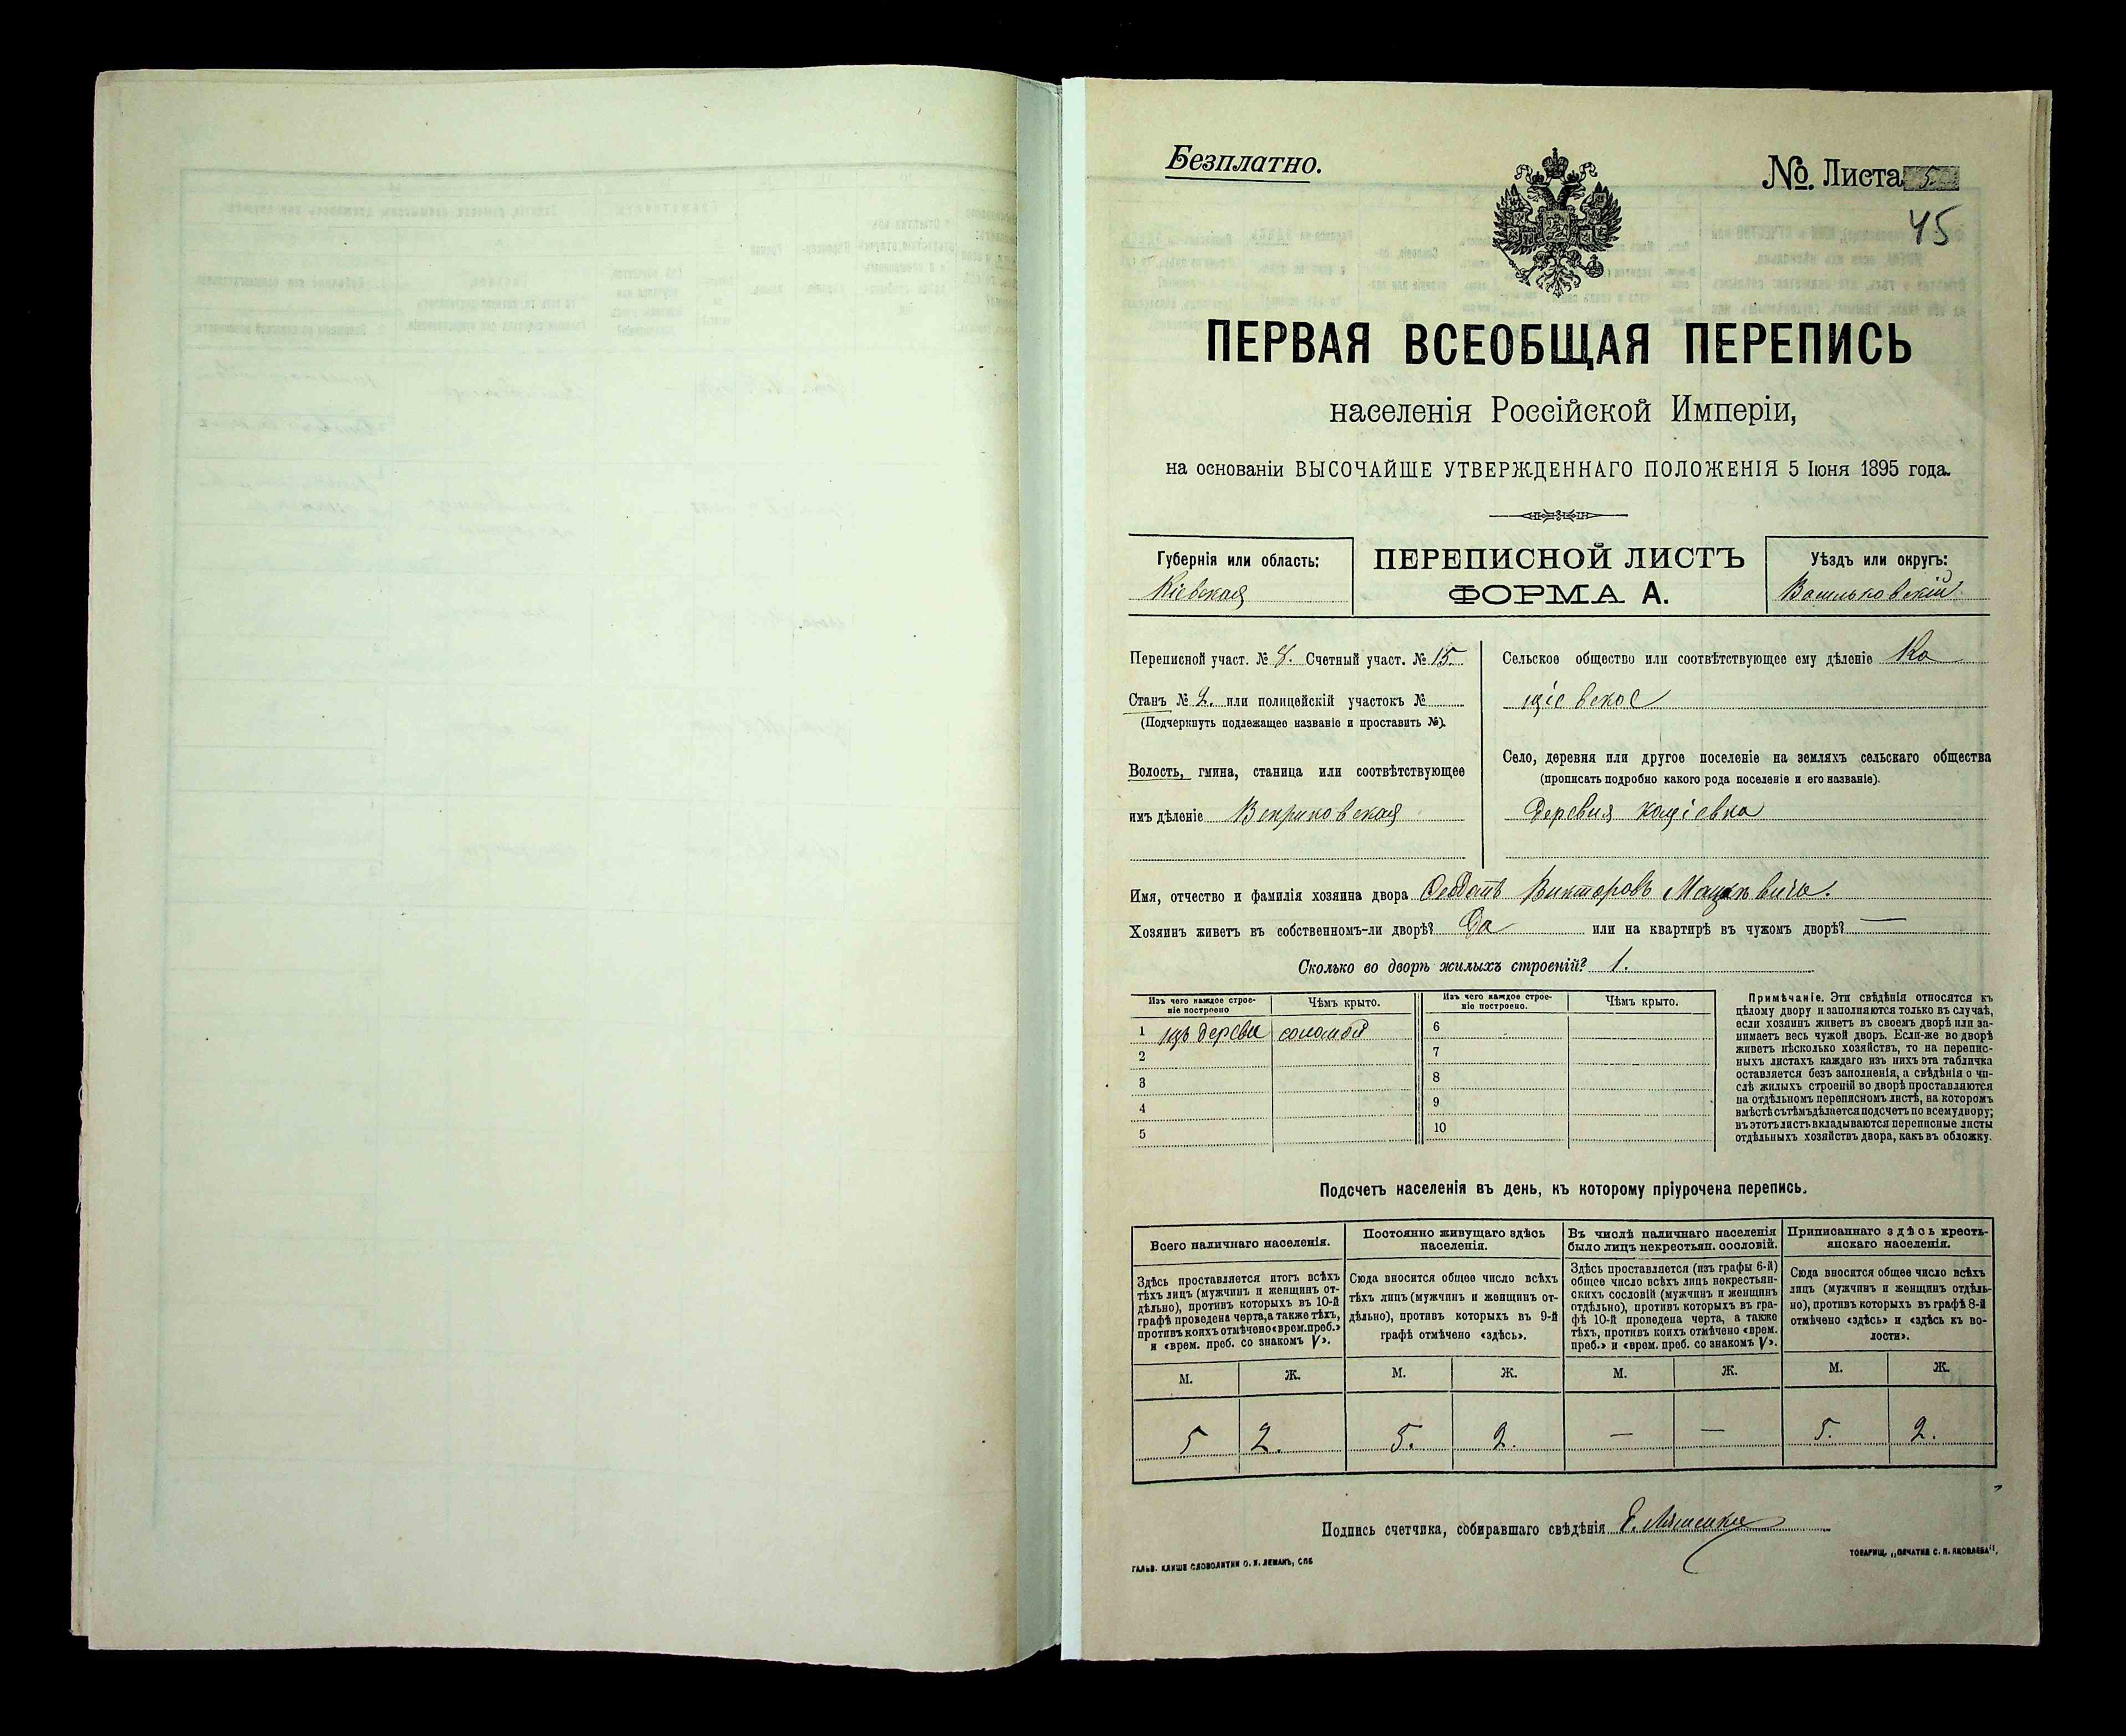 Безплатно.
№. Листа 5
45
ПЕРВАЯ ВСЕОБЩАЯ ПЕРЕПИСЬ
населенія Россійской Имперіи,
на основаніи ВЫСОЧАЙШЕ УТВЕРЖДЕННАГО ПОЛОЖЕНІЯ 5 Іюня 1895 года.
Губернія или область:
Кіевская
ПЕРЕПИСНОЙ ЛИСТЪ
ФОРМА А.
Уѣздъ или округъ:
Васильковскій
Переписной участ. № 8. Счетный участ. № 15.
Станъ № 2. или полицейскій участокъ №
(Подчеркнуть подлежащее названіе и проставить №).
Волость, гмина, станица или соотвѣтствующее
имъ дѣленіе Веприковская
Сельское общество или соотвѣтствующее ему дѣленіе Ко
щіевское
Село, деревня или другое поселеніе на земляхъ сельскаго общества
(прописать подробно какого рода поселеніе и его названіе).
Деревня кощіевка
Имя, отчество и фамилія хозяина двора Викторовъ
Хозяинъ живетъ въ собственномъ-ли дворѣ? Да или на квартирѣ въ чужомъ дворѣ? —
Сколько во дворѣ жилыхъ строеній? 1.
Изъ чего каждое строе-
ніе построено
Чѣмъ крыто.
Изъ чего каждое строе-
ніе построено.
Чѣмъ крыто.
1 изъ дерева соломой
2
3
4
5
6
7
8
9
10
Примѣчаніе. Эти свѣдѣнія относятся къ
цѣлому двору и заполняются только въ случаѣ,
если хозяинъ живетъ въ своемъ дворѣ или за-
нимаетъ весь чужой дворъ. Если-же во дворѣ
живетъ нѣсколько хозяйствъ, то на перепис-
ныхъ листахъ каждаго изъ нихъ эта табличка
оставляется безъ заполненія, а свѣдѣнія о чи-
слѣ жилыхъ строеній во дворѣ проставляются
на отдѣльномъ переписномъ листѣ, на которомъ
вмѣстѣ съ тѣмъ дѣлается подсчетъ по всему двору;
въ этотъ листъ вкладываются переписные листы
отдѣльныхъ хозяйствъ двора, какъ въ обложку.
Подсчетъ населенія въ день, къ которому пріурочена перепись.
Всего наличнаго населенія.
Здѣсь проставляется итогъ всѣхъ
тѣхъ лицъ (мужчинъ и женщинъ от-
дѣльно), противъ которыхъ въ 10-й
графѣ проведена черта, а также тѣхъ,
противъ коихъ отмѣчено «врем. преб.»
и «врем. преб. со знакомъ V».
Постоянно живущаго здѣсь
населенія.
Сюда вносится общее число всѣхъ
тѣхъ лицъ (мужчинъ и женщинъ от-
дѣльно), противъ которыхъ въ 9-й
графѣ отмѣчено «здѣсь».
Въ числѣ наличнаго населенія
было лицъ некрестьян. сословій.
Здѣсь проставляется (изъ графы 6-й)
общее число всѣхъ лицъ некрестьян-
скихъ сословій (мужчинъ и женщинъ
отдѣльно), противъ которыхъ въ гра-
фѣ 10-й проведена черта, а также
тѣхъ, противъ коихъ отмѣчено «врем.
преб.» и «врем. преб. со знакомъ V».
Приписаннаго здѣсь кресть-
янскаго населенія.
Сюда вносится общее число всѣхъ
лицъ (мужчинъ и женщинъ отдѣль-
но), противъ которыхъ въ графѣ 8-й
отмѣчено «здѣсь» и «здѣсь къ во-
лости».
М. Ж. М. Ж. М. Ж. М. Ж.
5 2. 5. 2. — — 5. 2.
Подпись счетчика, собиравшаго свѣдѣнія
ГАЛЬВ. КЛИШЕ СЛОВОЛИТНИ О. И. ЛЕМАНЪ, СПБ
ТОВАРИЩ. „ПЕЧАТНЯ С. П. ЯКОВЛЕВА“.